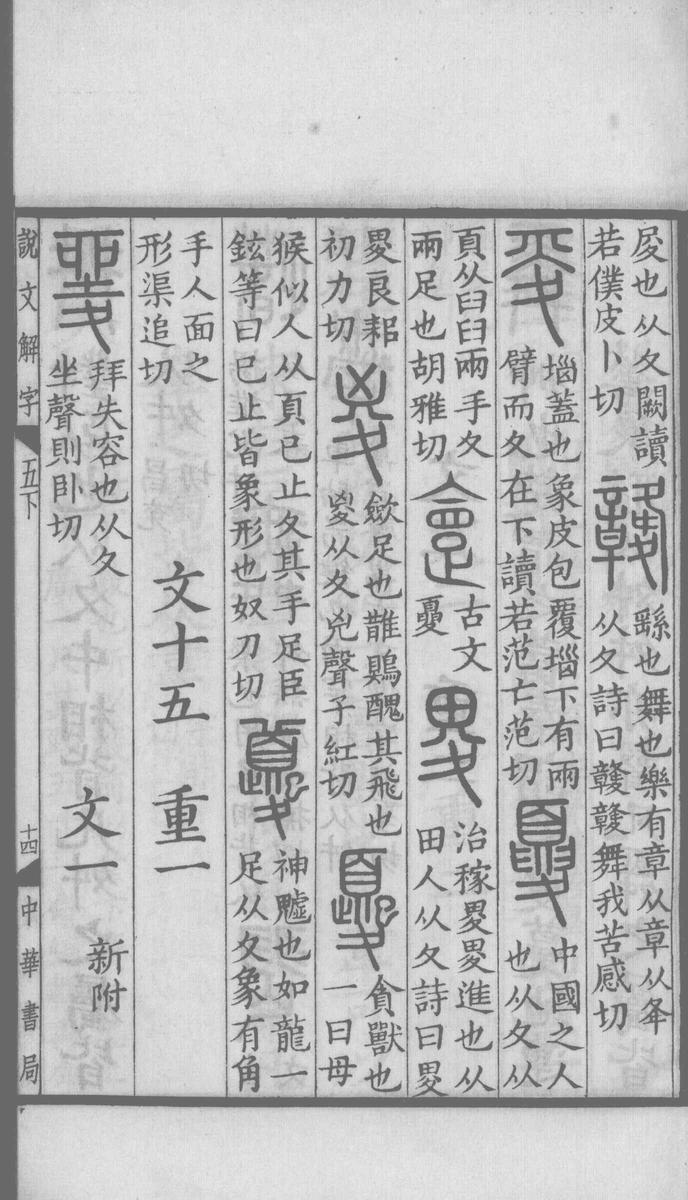 𡕢也从夂闕讀
若僕皮卜切
竷
䌛也舞也樂有章从章从夅
从夂詩曰竷竷舞我苦感切
堖蓋也象皮包覆堖下有兩
臂而夂在下讀若范亡范切
夏
中國之人
也从夂从
頁从臼臼兩手夂
兩足也胡雅切
古文
夓
畟
治稼畟畟進也从
田人从夂詩曰畟
畟良耜
初力切
㚇
斂足也䧿鵙醜其飛也
㚇从夂兇聲子紅切
夒
貪獸也
一曰母
猴似人从頁巳止夂其手足臣
鉉等曰巳止皆象形也奴刀切
夔
神魖也如龍一
足从夂象有角
手人面之
形渠追切
文十五 重一
夎
拜失容也从夂
坐聲則卧切
文一 新附
說文解字 五下 十四 中華書局